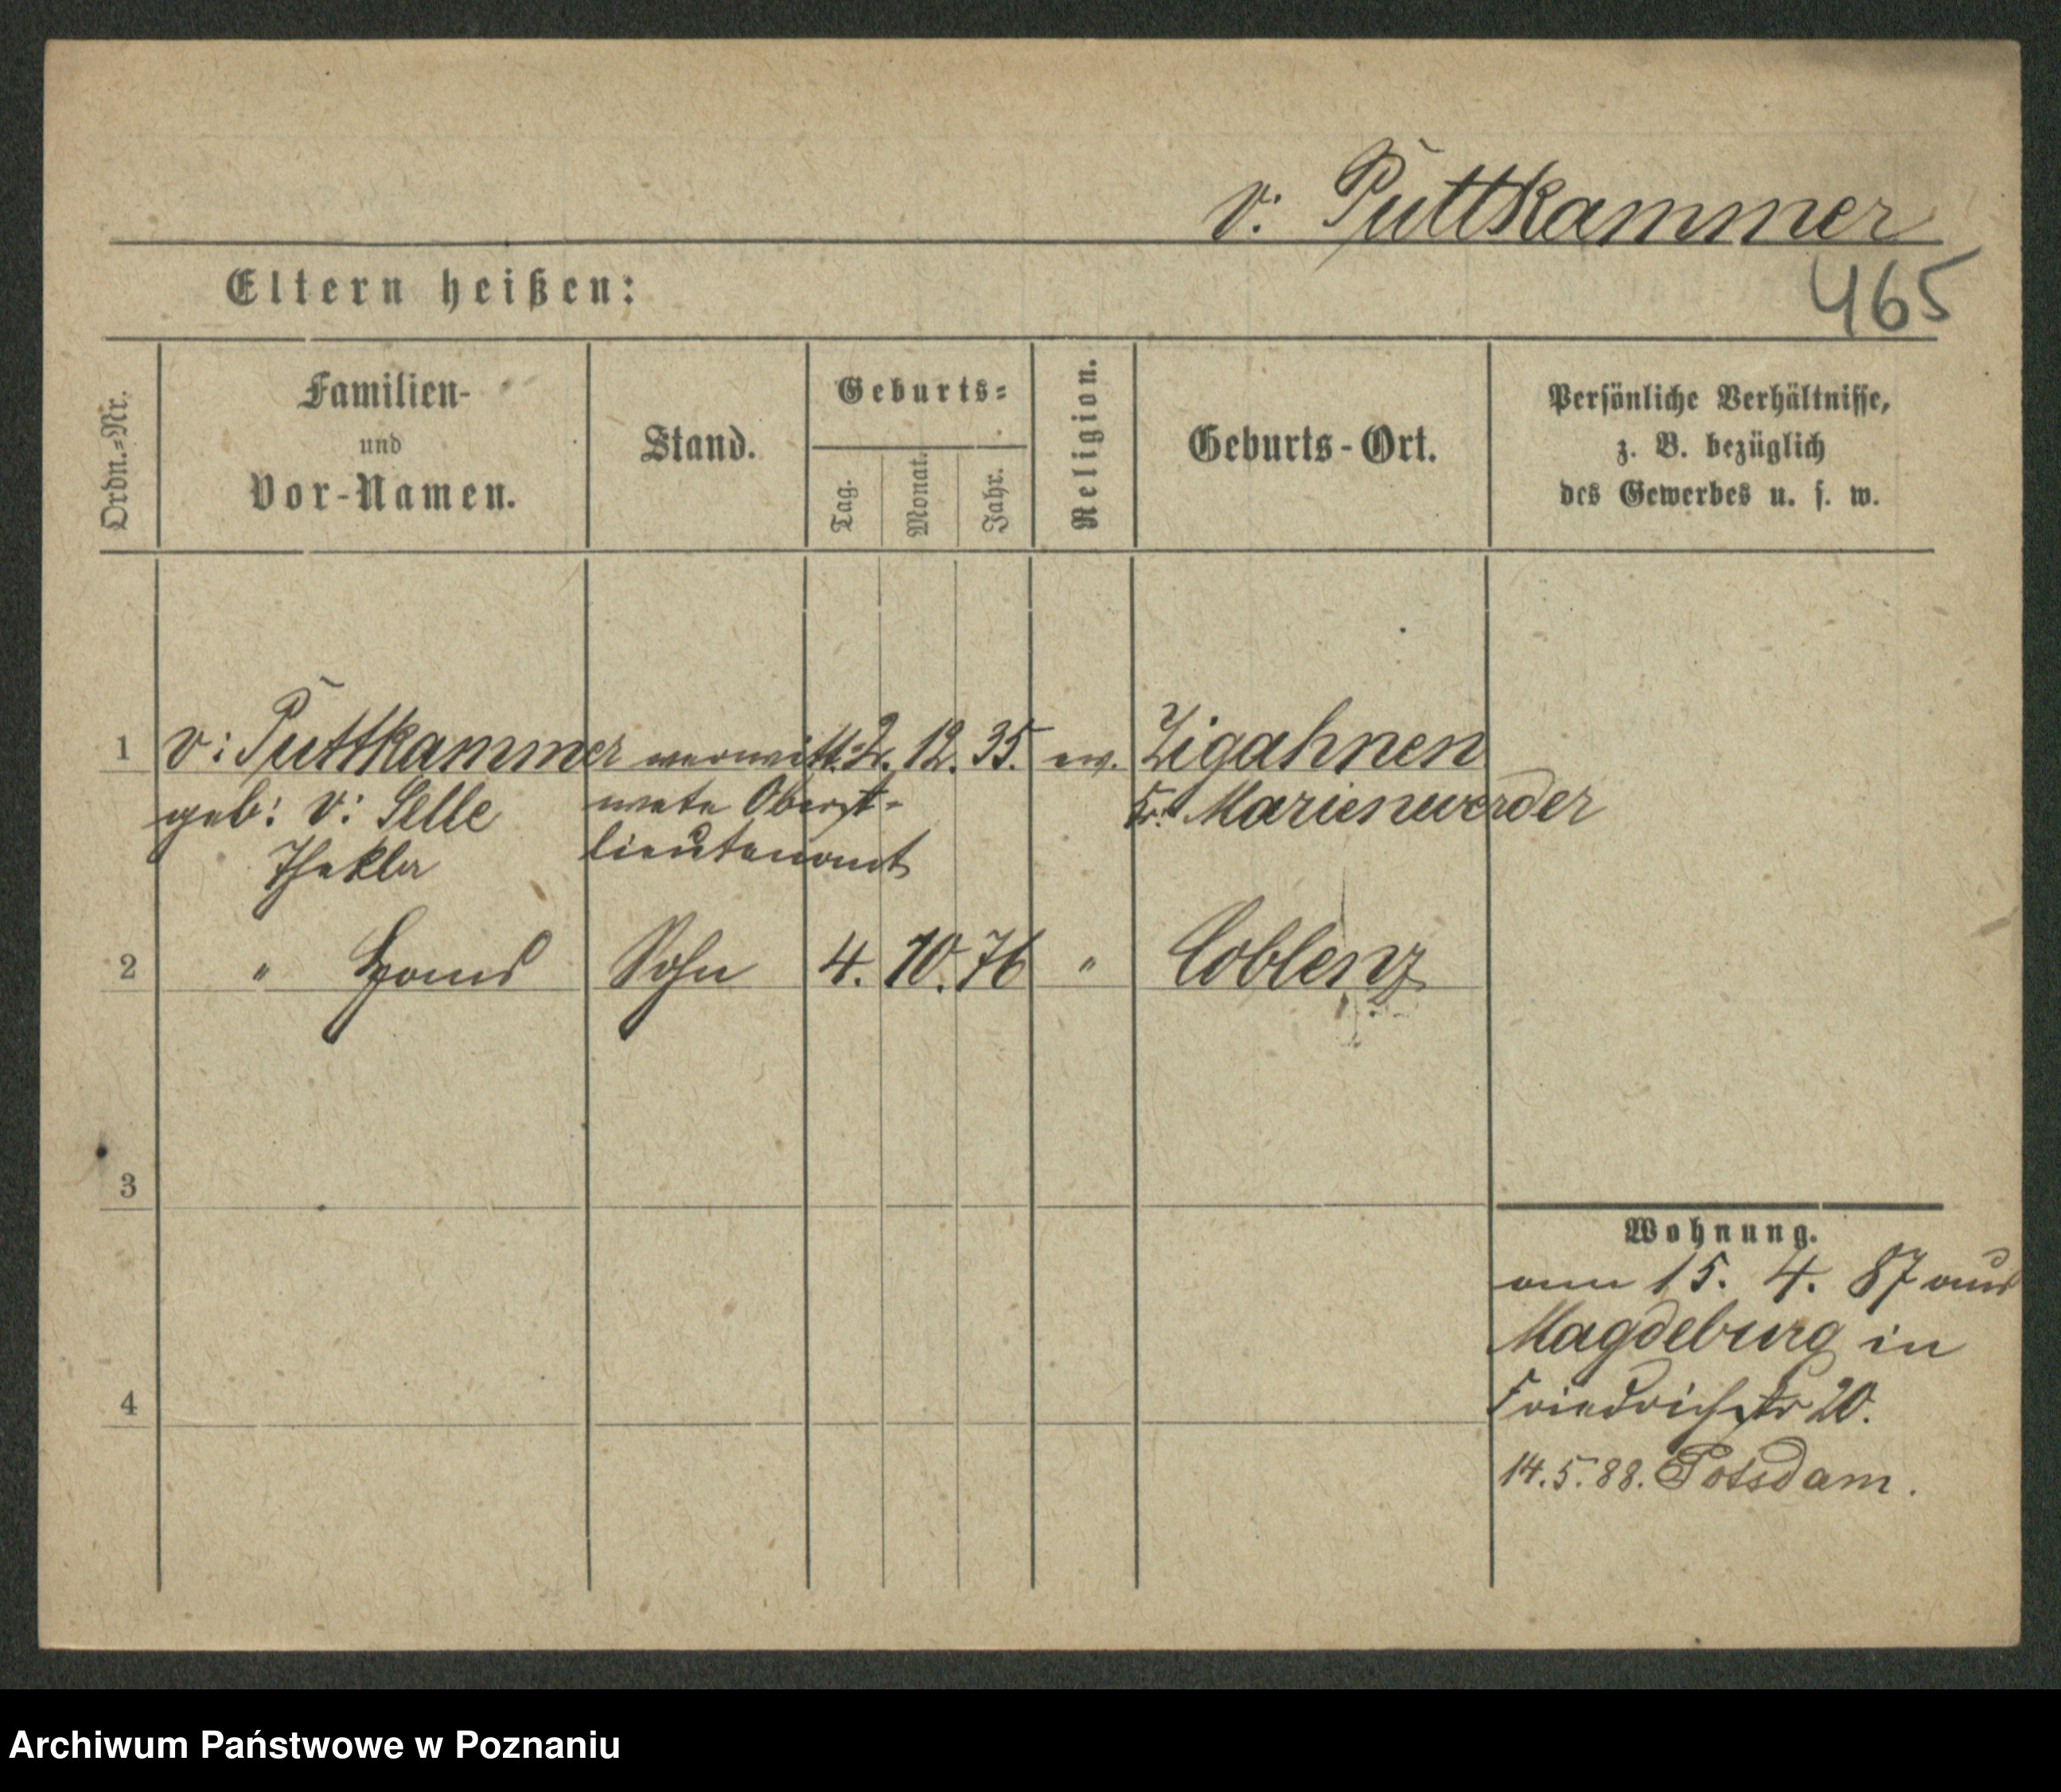 v: Puttkammer
465
Eltern heißen:
Ordn.-Nr.
Familien-
und
Vor-Namen.
Stand.
Geburts-
Tag.
Monat.
Jahr.
Religion.
Geburts-Ort.
Persönliche Verhältnisse,
z. B. bezüglich
des Gewerbes u. s. w.
1 v: Puttkammer verwitt- 2. 12. 35. ev. Zigahnen
geb: v: Selle wete Oberst- Kr. Marienwerder
Thekla lieutenant
2 " Hans Sohn 4. 10. 76 " Coblenz
3
Wohnung.
am 15. 4. 87 aus
Magdeburg in
4
Friedrichstr 20.
14. 5. 88. Potsdam.
Archiwum Państwowe w Poznaniu